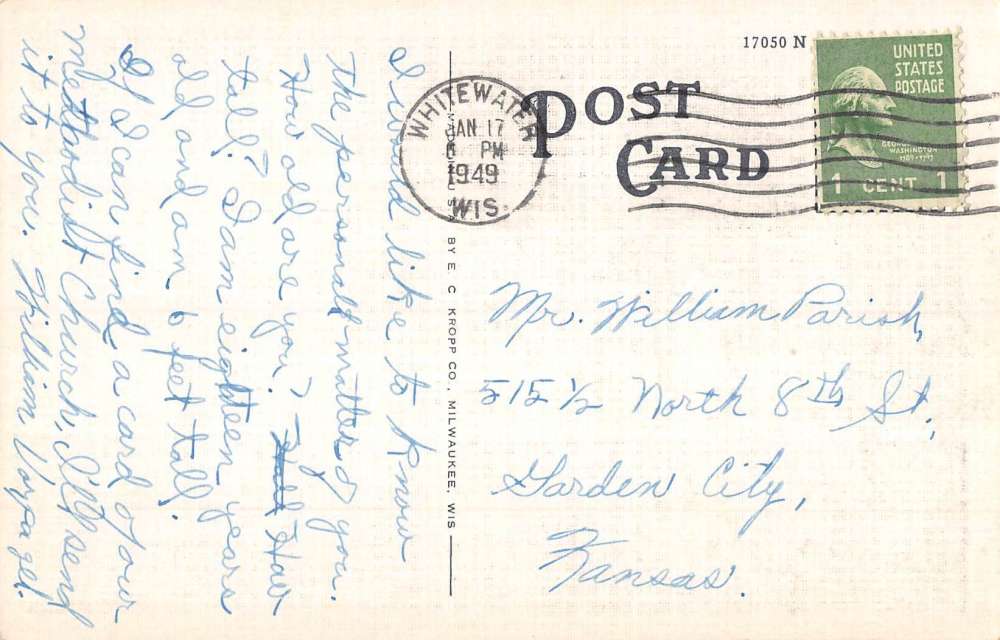 I would like to know
the personal matters of you.
How old are you? How
tall? I am eighteen years
old, and am 6 feet tall.
If I can find a card of our
methodist Church, I'll send
it to you. William
17050 N
POST
CARD
WHITEWATER
JAN 17
PM
1949
WIS.
UNITED
STATES
POSTAGE
GEORGE
WASHINGTON
1789-1797
1 CENT 1
BY E. C. KROPP CO., MILWAUKEE, WIS
Mr. William Parish,
515 1/2 North 8th St.,
Garden City,
Kansas.